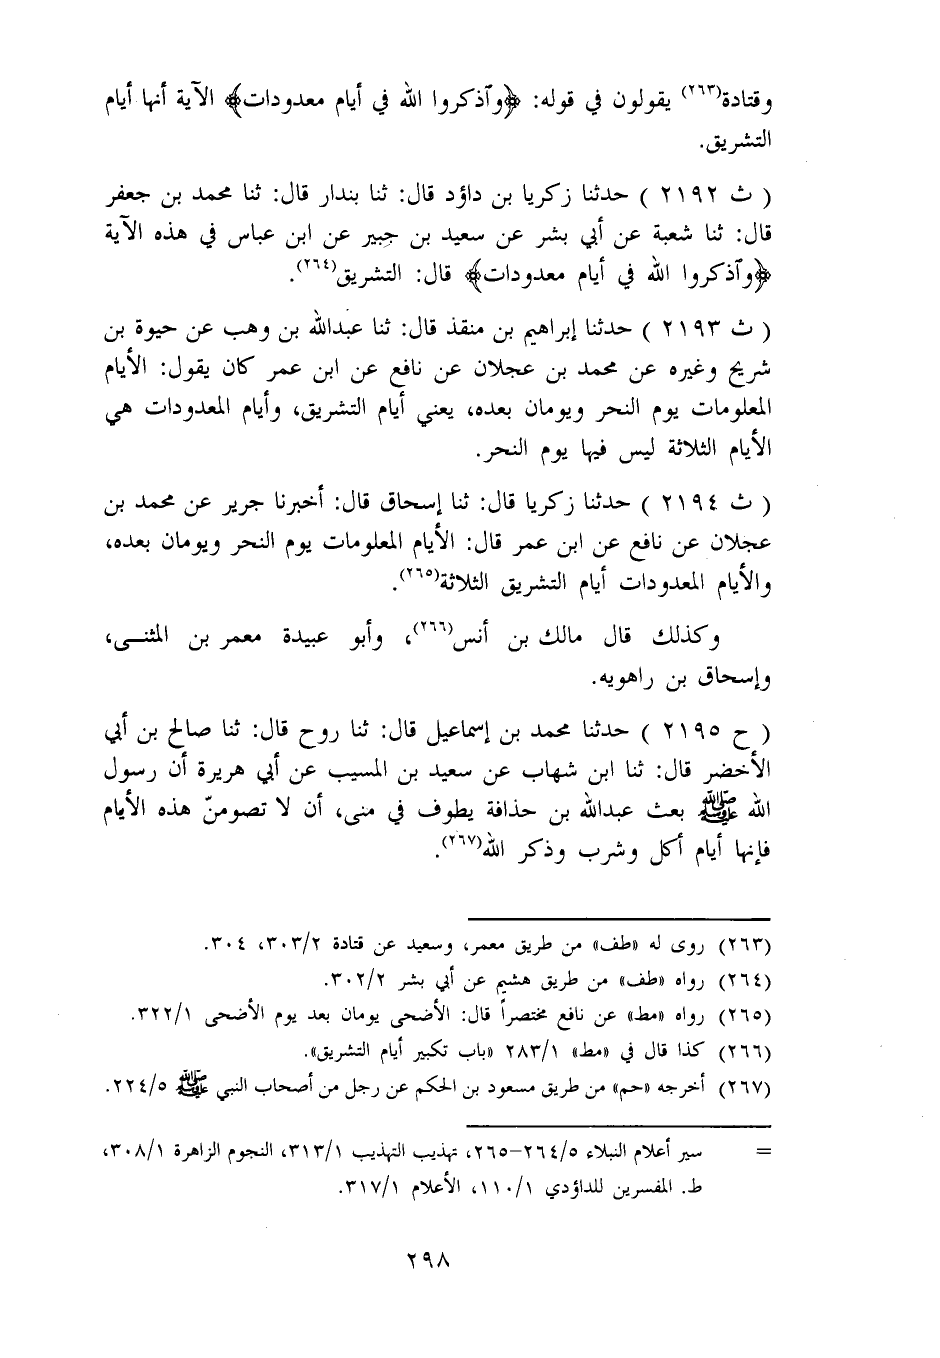 وقتادة(٢٦٣) يقولون في قوله: ﴿وٱذكروا الله في أيام معدودات﴾ الآية أنها أيام
التشريق.
( ث ٢١٩٢ ) حدثنا زكريا بن داؤد قال: ثنا بندار قال: ثنا محمد بن جعفر
قال: ثنا شعبة عن أبي بشر عن سعيد بن جبير عن ابن عباس في هذه الآية
﴿وٱذكروا الله في أيام معدودات﴾ قال: التشريق(٢٦٤).
( ث ٢١٩٣ ) حدثنا إبراهيم بن منقذ قال: ثنا عبدالله بن وهب عن حيوة بن
شريح وغيره عن محمد بن عجلان عن نافع عن ابن عمر كان يقول: الأيام
المعلومات يوم النحر ويومان بعده، يعني أيام التشريق، وأيام المعدودات هي
الأيام الثلاثة ليس فيها يوم النحر.
( ث ٢١٩٤ ) حدثنا زكريا قال: ثنا إسحاق قال: أخبرنا جرير عن محمد بن
عجلان عن نافع عن ابن عمر قال: الأيام المعلومات يوم النحر ويومان بعده،
والأيام المعدودات أيام التشريق الثلاثة(٢٦٥).
وكذلك قال مالك بن أنس(٢٦٦)، وأبو عبيدة معمر بن المثنــى،
وإسحاق بن راهويه.
( ح ٢١٩٥ ) حدثنا محمد بن إسماعيل قال: ثنا روح قال: ثنا صالح بن أبي
الأخضر قال: ثنا ابن شهاب عن سعيد بن المسيب عن أبي هريرة أن رسول
الله ﷺ بعث عبدالله بن حذافة يطوف في منى، أن لا تصومنّ هذه الأيام
فإنها أيام أكل وشرب وذكر الله(٢٦٧).
(٢٦٣) روى له «طف» من طريق معمر، وسعيد عن قتادة ٣٠٣/٢، ٣٠٤.
(٢٦٤) رواه «طف» من طريق هشيم عن أبي بشر ٣٠٢/٢.
(٢٦٥) رواه «مط» عن نافع مختصراً قال: الأضحى يومان بعد يوم الأضحى ٣٢٢/١.
(٢٦٦) كذا قال في «مط» ٢٨٣/١ «باب تكبير أيام التشريق».
(٢٦٧) أخرجه «حم» من طريق مسعود بن الحكم عن رجل من أصحاب النبي ﷺ ٢٢٤/٥.
= سير أعلام النبلاء ٢٦٤/٥–٢٦٥، تهذيب التهذيب ٣١٣/١، النجوم الزاهرة ٣٠٨/١،
ط. المفسرين للداؤدي ١١٠/١، الأعلام ٣١٧/١.
٢٩٨